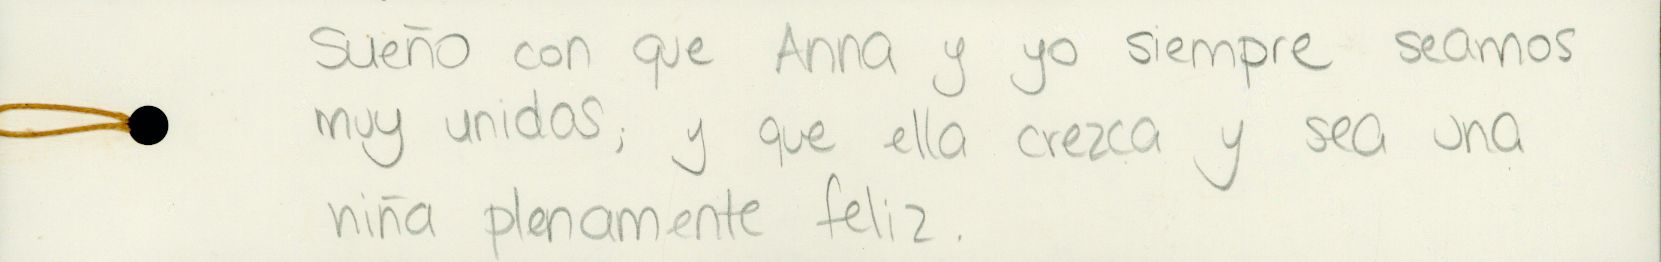 Sueño con que Anna y yo siempre seamos
muy unidas; y que ella crezca y sea una
niña plenamente feliz.